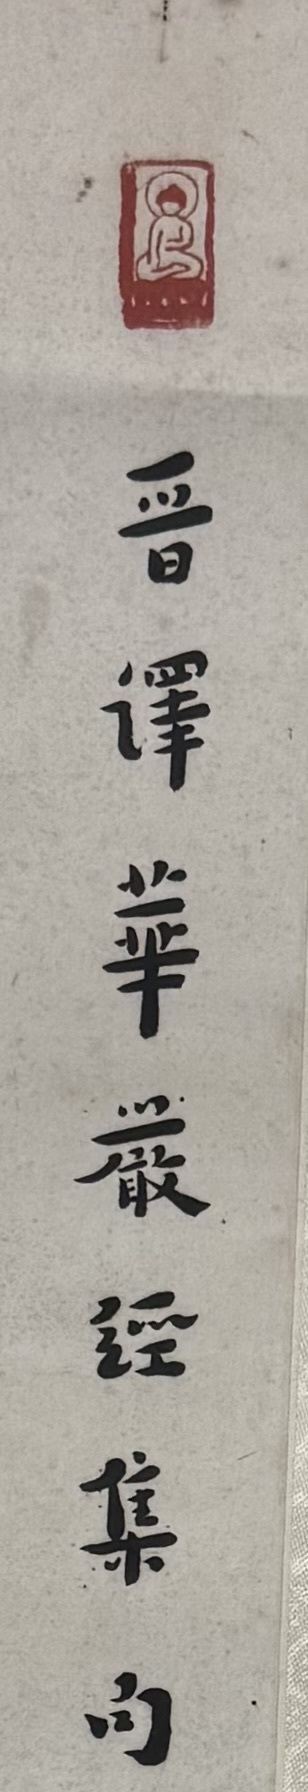 晉譯華嚴經集句